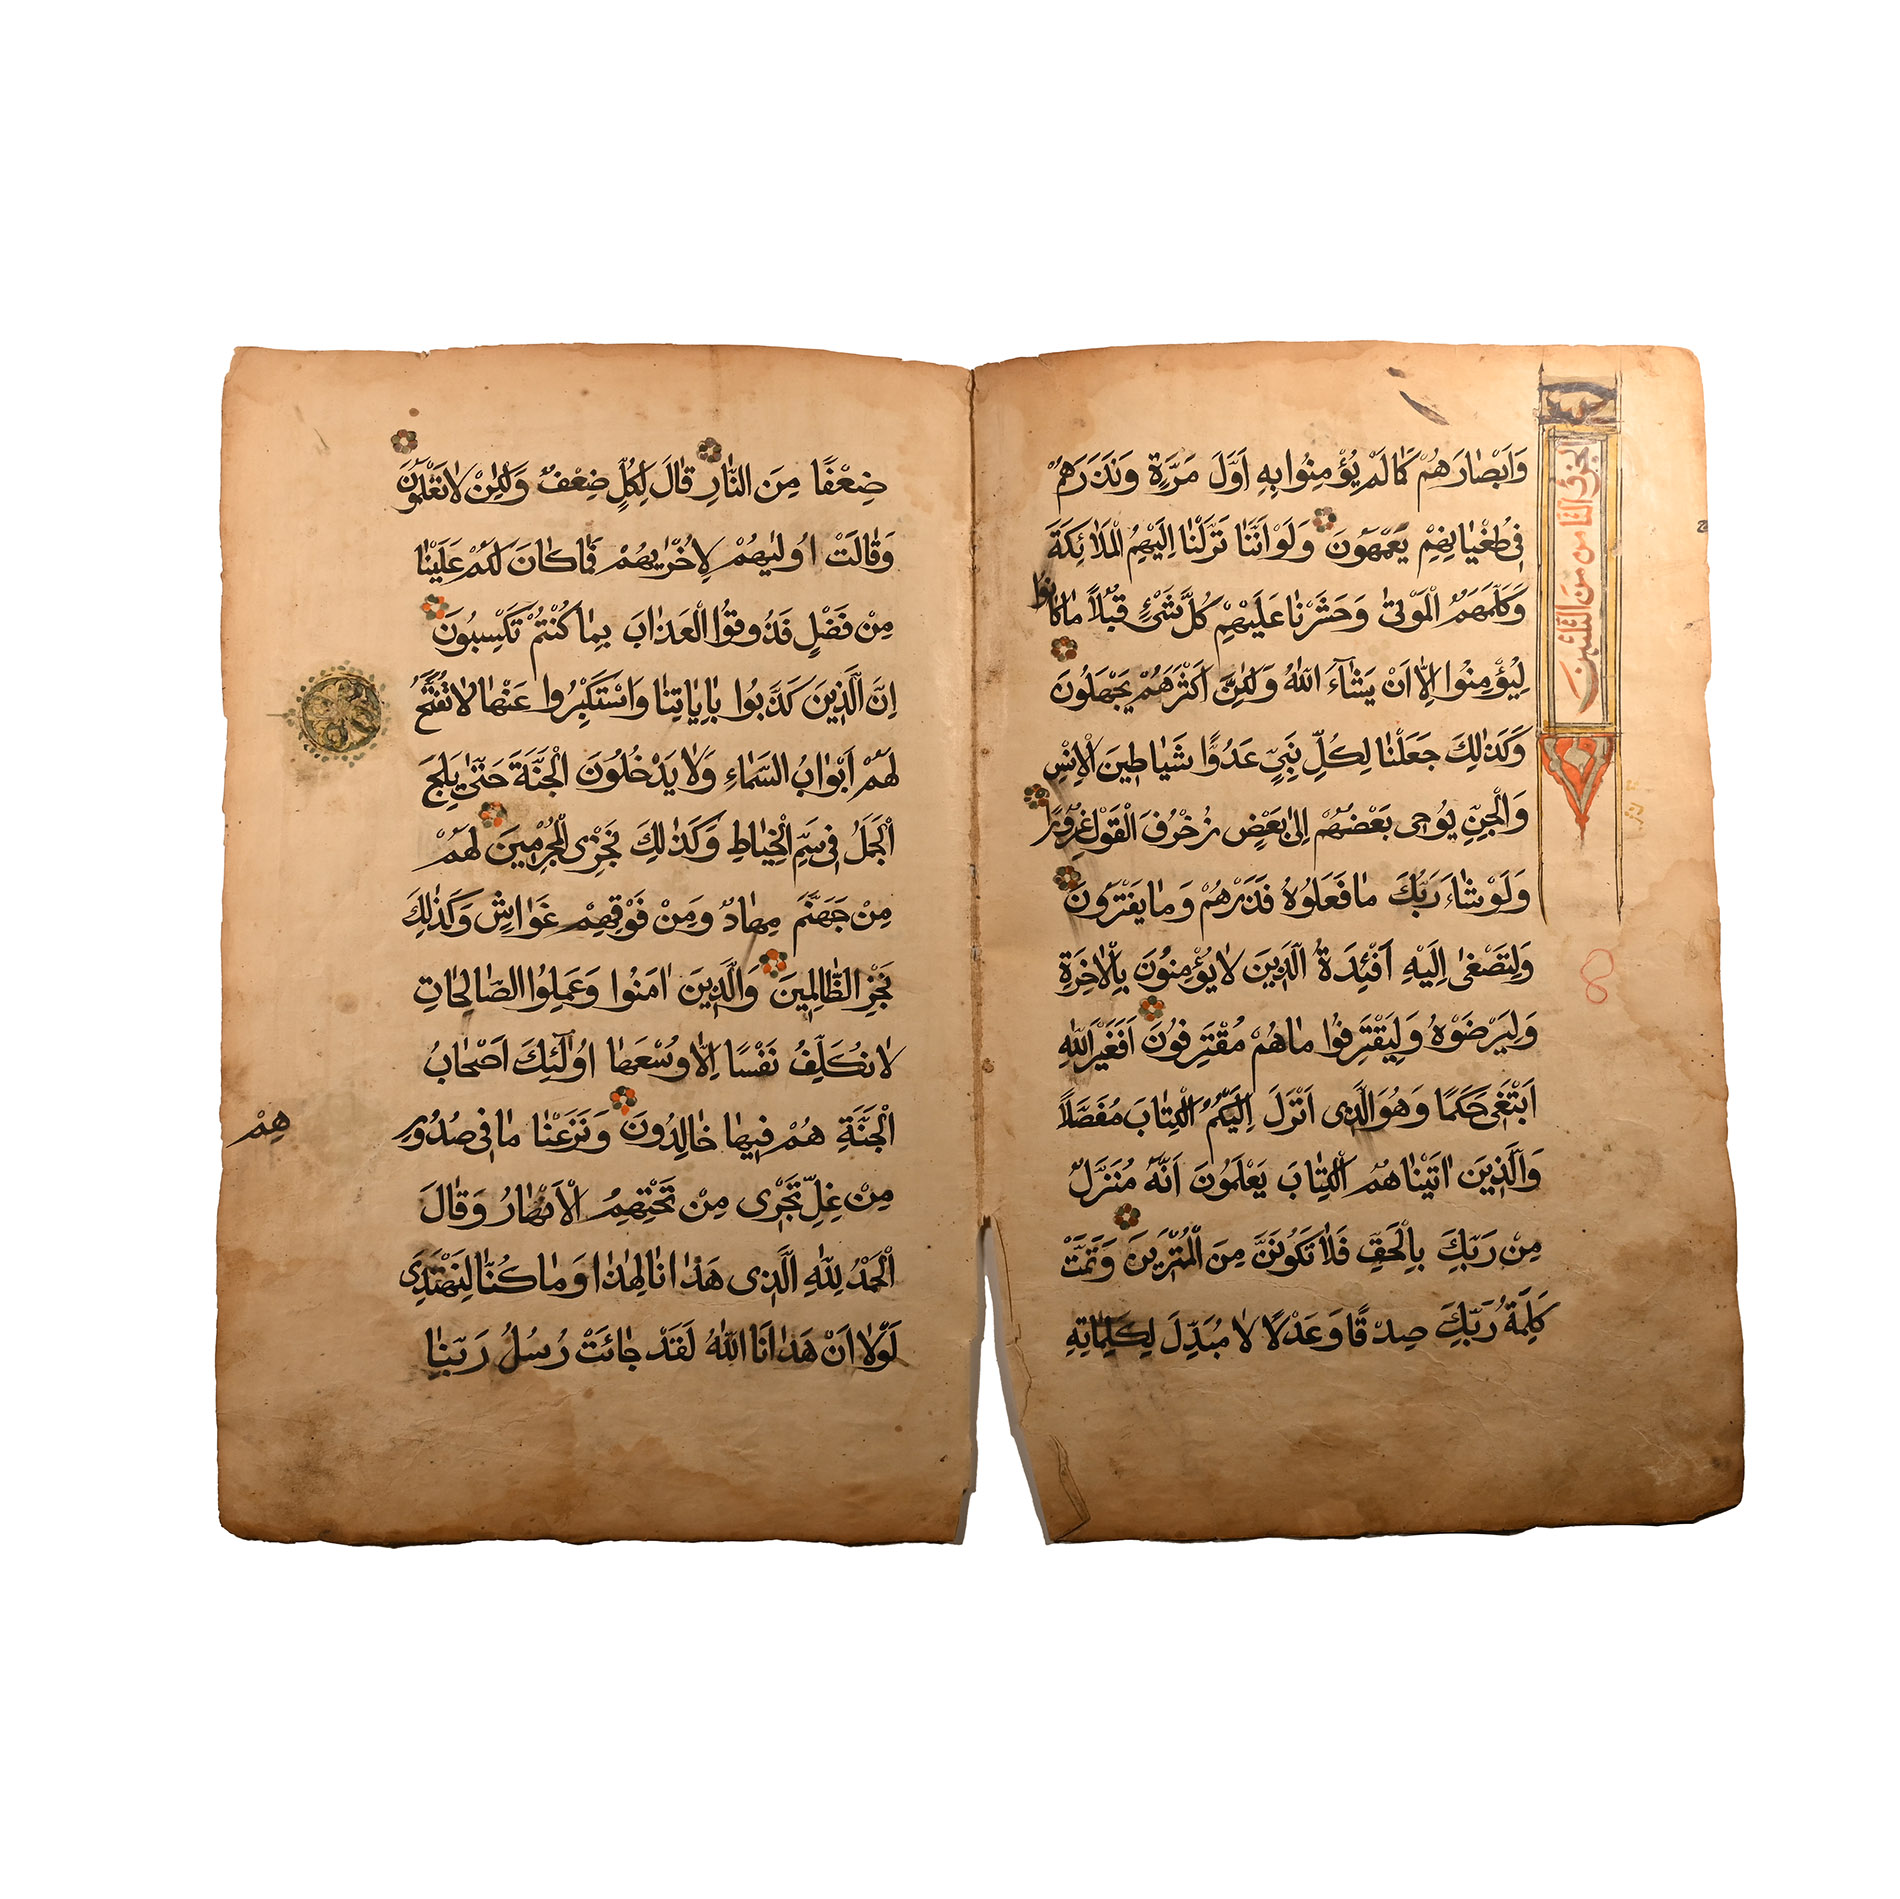 وَاَبْصَارَهُمْ كَمَا لَمْ يُؤْمِنُوا بِهِ اَوَّلَ مَرَّةٍ وَنَذَرُهُمْ
فِى طُغْيَانِهِمْ يَعْمَهُونَ وَلَوْ اَنَّنَا نَزَّلْنَا اِلَيْهِمُ الْمَلَائِكَةَ
وَكَلَّمَهُمُ الْمَوْتٰى وَحَشَرْنَا عَلَيْهِمْ كُلَّ شَىْءٍ قُبُلًا مَا كَانُوا
لِيُؤْمِنُوا اِلَّا اَنْ يَشَاءَ اللّٰهُ وَلٰكِنَّ اَكْثَرَهُمْ يَجْهَلُونَ
وَكَذٰلِكَ جَعَلْنَا لِكُلِّ نَبِىٍّ عَدُوًّا شَيَاطِينَ الْاِنْسِ
وَالْجِنِّ يُوحِى بَعْضُهُمْ اِلٰى بَعْضٍ زُخْرُفَ الْقَوْلِ غُرُورًا
وَلَوْ شَاءَ رَبُّكَ مَا فَعَلُوهُ فَذَرْهُمْ وَمَا يَفْتَرُونَ
وَلِتَصْغٰى اِلَيْهِ اَفْئِدَةُ الَّذِينَ لَا يُؤْمِنُونَ بِالْاٰخِرَةِ
وَلِيَرْضَوْهُ وَلِيَقْتَرِفُوا مَا هُمْ مُقْتَرِفُونَ اَفَغَيْرَ اللّٰهِ
اَبْتَغِى حَكَمًا وَهُوَ الَّذِى اَنْزَلَ اِلَيْكُمُ الْكِتَابَ مُفَصَّلًا
وَالَّذِينَ اٰتَيْنَاهُمُ الْكِتَابَ يَعْلَمُونَ اَنَّهُ مُنَزَّلٌ
مِنْ رَبِّكَ بِالْحَقِّ فَلَا تَكُونَنَّ مِنَ الْمُمْتَرِينَ وَتَمَّتْ
كَلِمَةُ رَبِّكَ صِدْقًا وَعَدْلًا لَا مُبَدِّلَ لِكَلِمَاتِهِ
الجزؤ الثامن من الثلثين
ضِعْفًا مِنَ النَّارِ قَالَ لِكُلٍّ ضِعْفٌ وَلٰكِنْ لَا تَعْلَمُونَ
وَقَالَتْ اُولٰيهُمْ لِاُخْرٰيهُمْ فَمَا كَانَ لَكُمْ عَلَيْنَا
مِنْ فَضْلٍ فَذُوقُوا الْعَذَابَ بِمَا كُنْتُمْ تَكْسِبُونَ
اِنَّ الَّذِينَ كَذَّبُوا بِاٰيَاتِنَا وَاسْتَكْبَرُوا عَنْهَا لَا تُفَتَّحُ
لَهُمْ اَبْوَابُ السَّمَاءِ وَلَا يَدْخُلُونَ الْجَنَّةَ حَتّٰى يَلِجَ
الْجَمَلُ فِى سَمِّ الْخِيَاطِ وَكَذٰلِكَ نَجْزِى الْمُجْرِمِينَ لَهُمْ
مِنْ جَهَنَّمَ مِهَادٌ وَمِنْ فَوْقِهِمْ غَوَاشٍ وَكَذٰلِكَ
نَجْزِ الظَّالِمِينَ وَالَّذِينَ اٰمَنُوا وَعَمِلُوا الصَّالِحَاتِ
لَا نُكَلِّفُ نَفْسًا اِلَّا وُسْعَهَا اُولٰئِكَ اَصْحَابُ
الْجَنَّةِ هُمْ فِيهَا خَالِدُونَ وَنَزَعْنَا مَا فِى صُدُورِ
هِمْ
مِنْ غِلٍّ تَجْرِى مِنْ تَحْتِهِمُ الْاَنْهَارُ وَقَالَ
الْحَمْدُ لِلّٰهِ الَّذِى هَدَانَا لِهٰذَا وَمَا كُنَّا لِنَهْتَدِىَ
لَوْلَا اَنْ هَدَانَا اللّٰهُ لَقَدْ جَائَتْ رُسُلُ رَبِّنَا